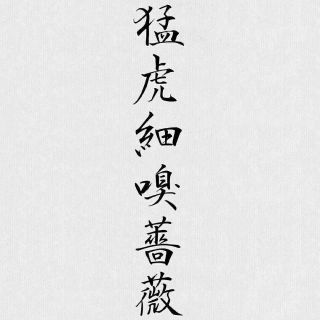 猛虎細嗅薔薇